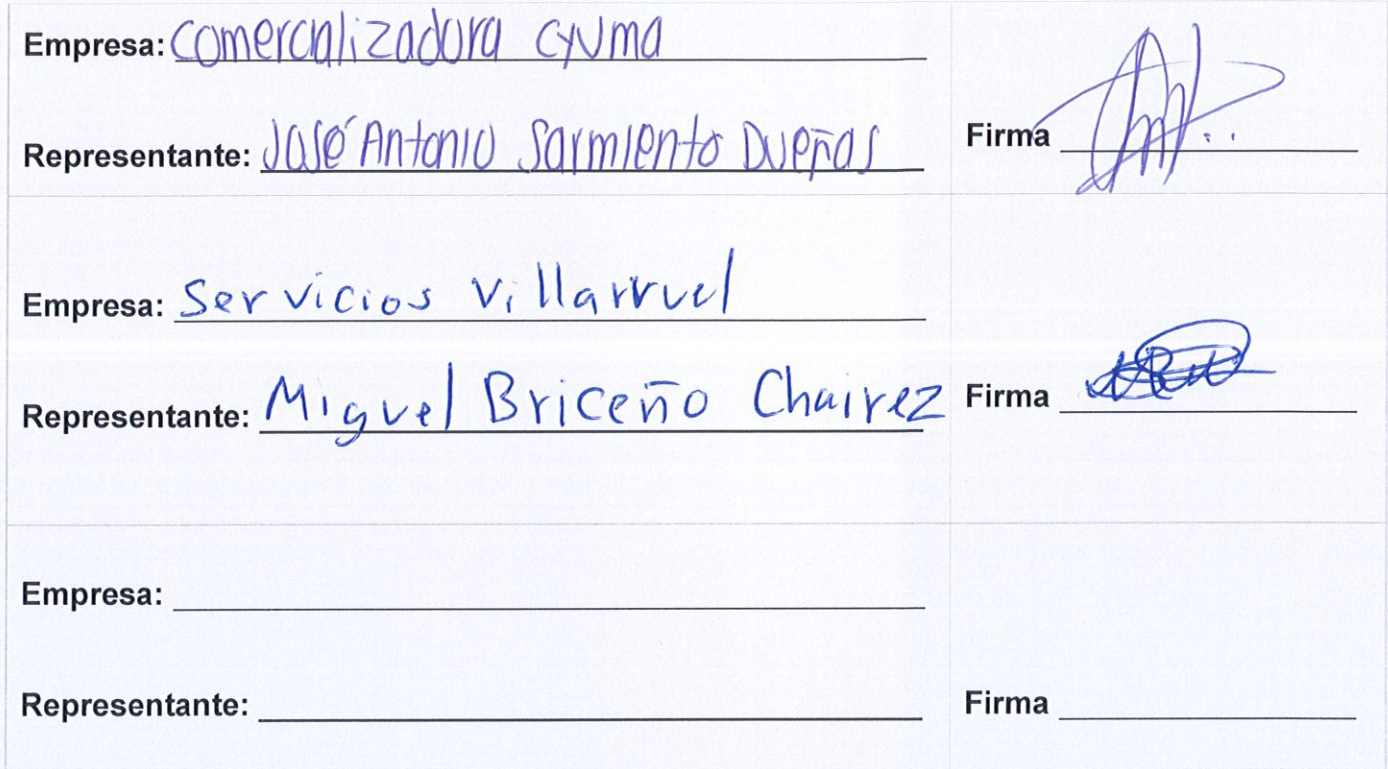 Empresa: Comercializadora cyuma
Representante: José Antonio Sarmiento Dueñas Firma
Empresa: Servicios Villarruel
Representante: Miguel Briceño Chairez Firma
Empresa:
Representante: Firma